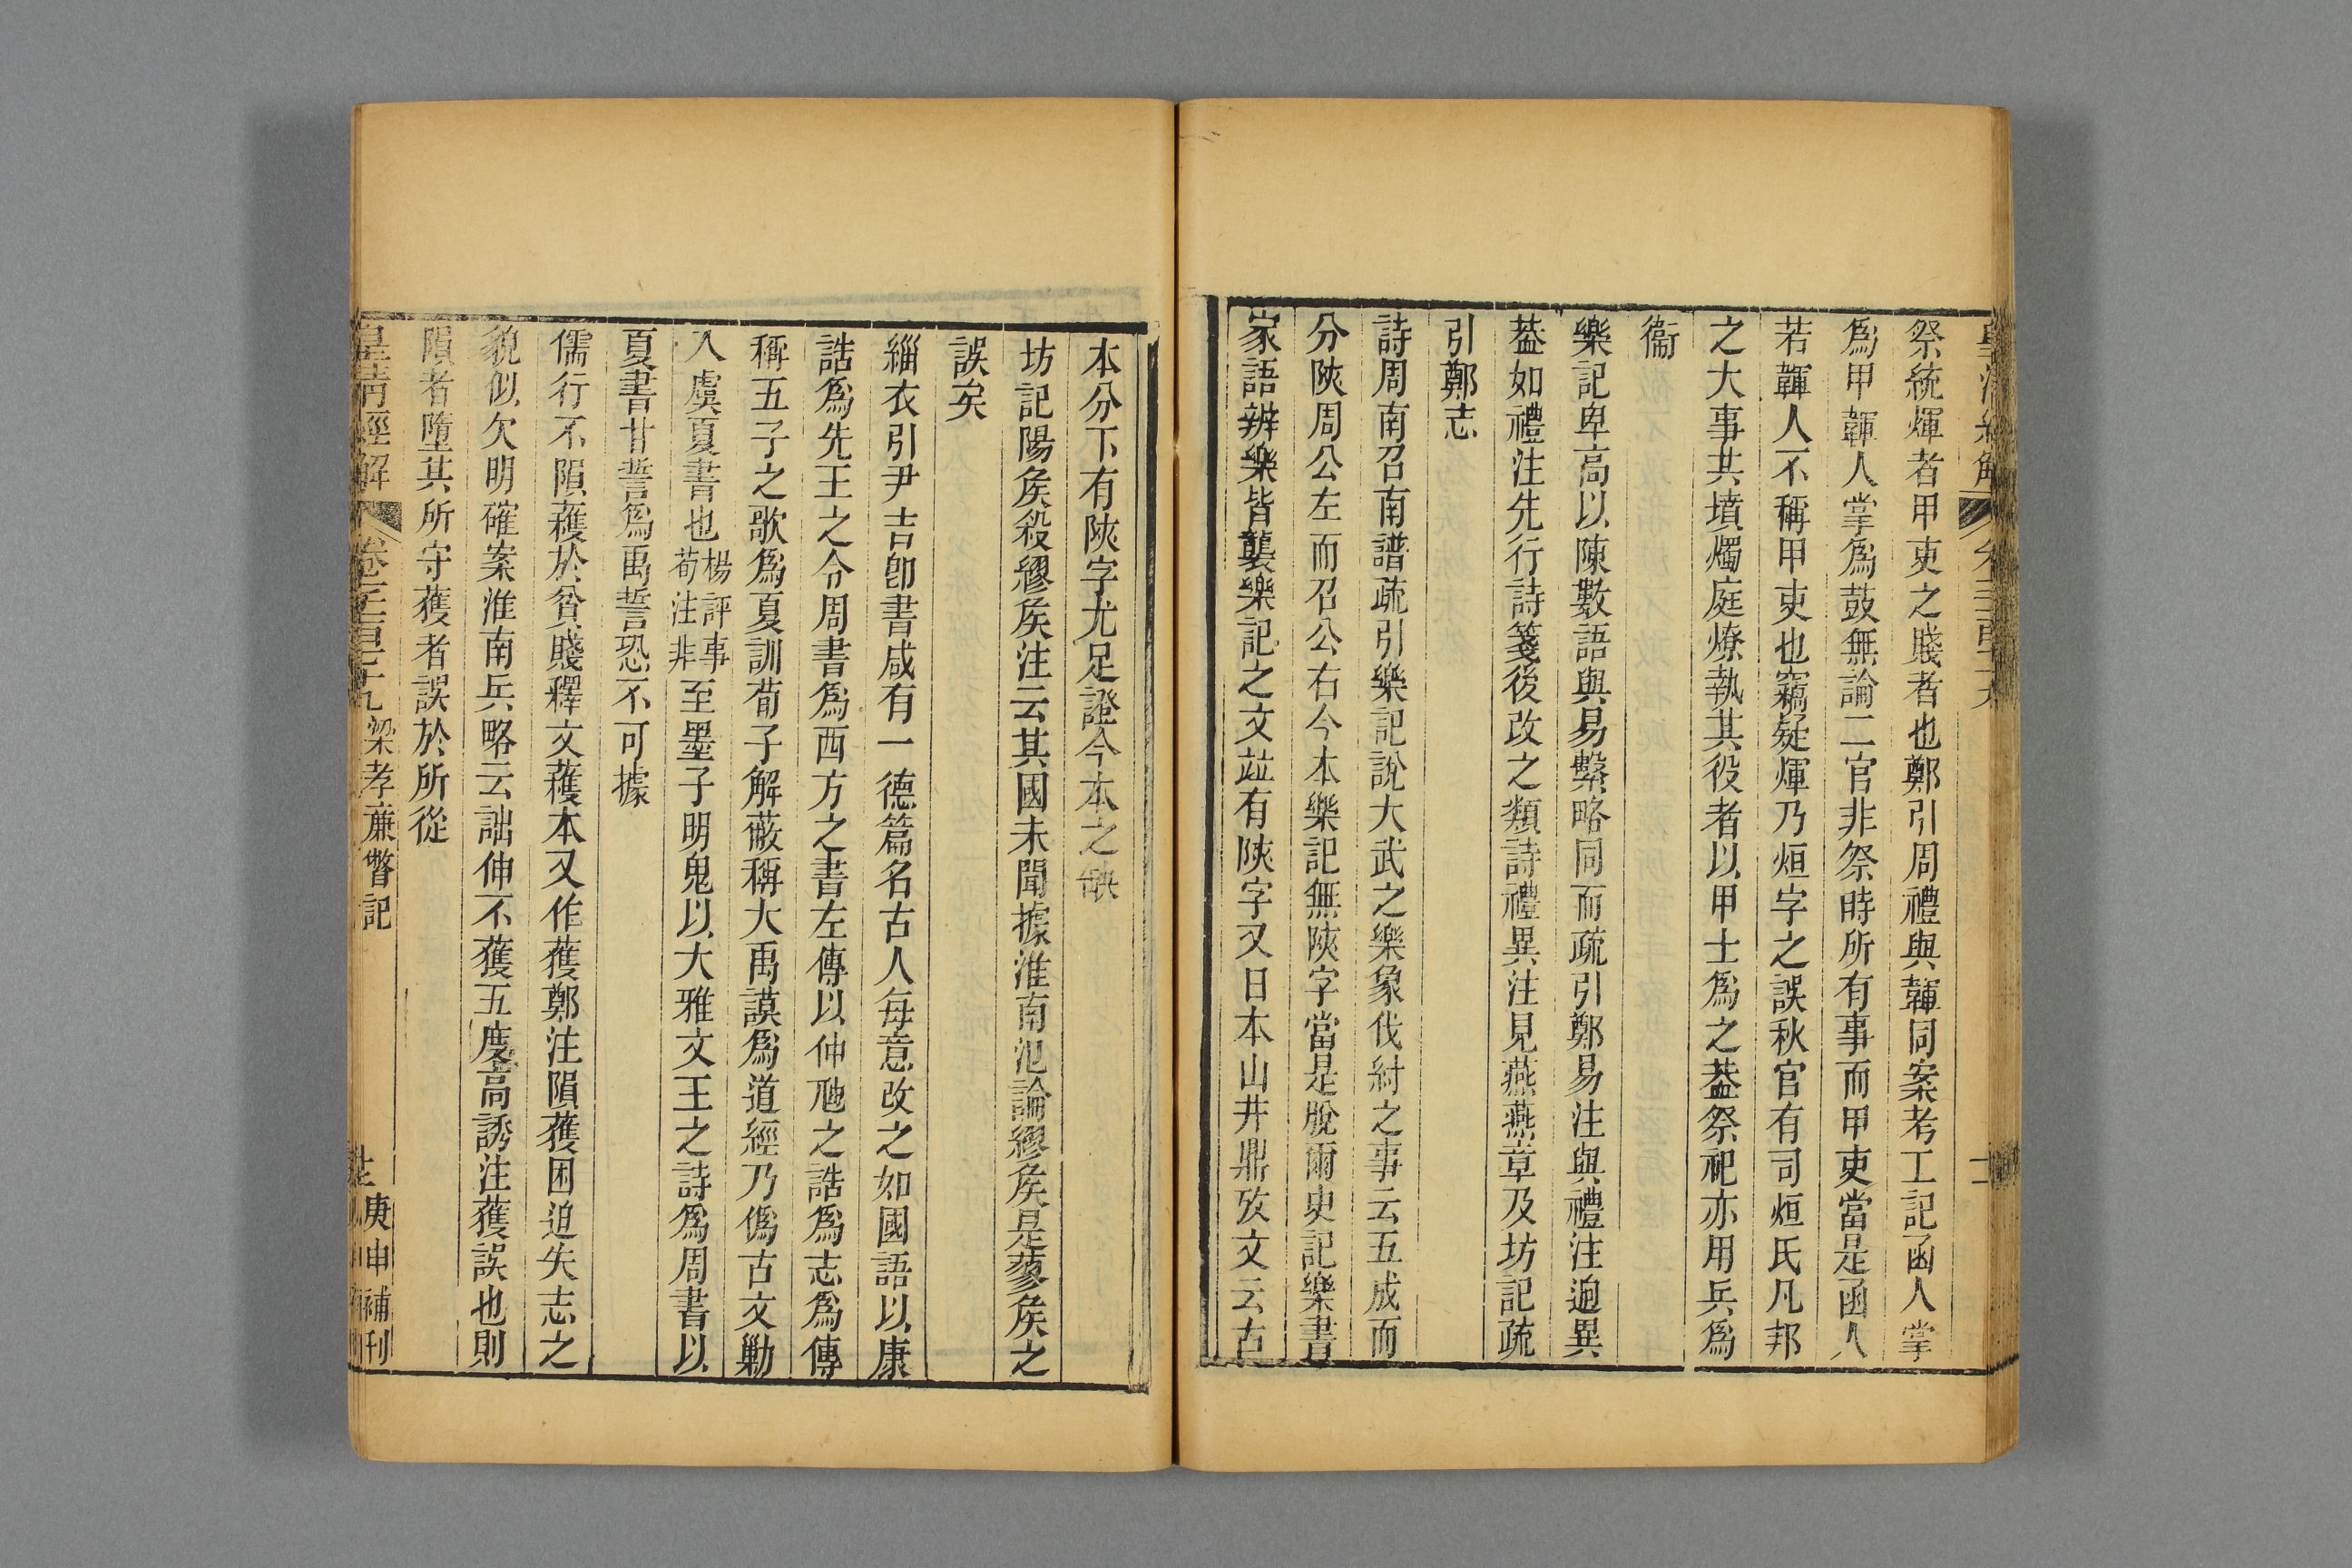 祭統煇者甲吏之賤者也鄭引周禮與韗同案考工記函人掌
爲甲韗人掌爲鼓無論二官非祭時所有事而甲吏當是函人
若韗人不稱甲吏也竊疑煇乃烜字之誤秋官有司烜氏凡邦
之大事共墳燭庭燎執其役者以甲士爲之葢祭祀亦用兵爲
衞
樂記卑高以陳數語與易繫略同而疏引鄭易注與禮注逈異
葢如禮注先行詩箋後改之類詩禮異注見燕燕章及坊記疏
引鄭志
詩周南召南譜疏引樂記說大武之樂象伐紂之事云五成而
分陜周公左而召公右今本樂記無陜字當是脫爾史記樂書
家語辨樂皆襲樂記之文竝有陜字又日本山井鼎攷文云古
本分下有陜字尤足證今本之缺
坊記陽矦殺繆矦注云其國未聞據淮南氾論繆矦是蓼矦之
誤矣
緇衣引尹吉卽書咸有一德篇名古人每意改之如國語以康
誥爲先王之令周書爲西方之書左傳以仲虺之誥爲志爲傳
稱五子之歌爲夏訓荀子解蔽稱大禹謨爲道經乃僞古文勦
入虞夏書也楊評事荀注非至墨子明鬼以大雅文王之詩爲周書以
夏書甘誓爲禹誓恐不可據
儒行不隕穫於貧賤釋文穫本又作獲鄭注隕獲困迫失志之
貌似欠明確案淮南兵略云詘伸不獲五度高誘注獲誤也則
隕者墮其所守獲者誤於所從
皇清經解 卷一千一百七十九 梁孝廉瞥記 庚申補刊